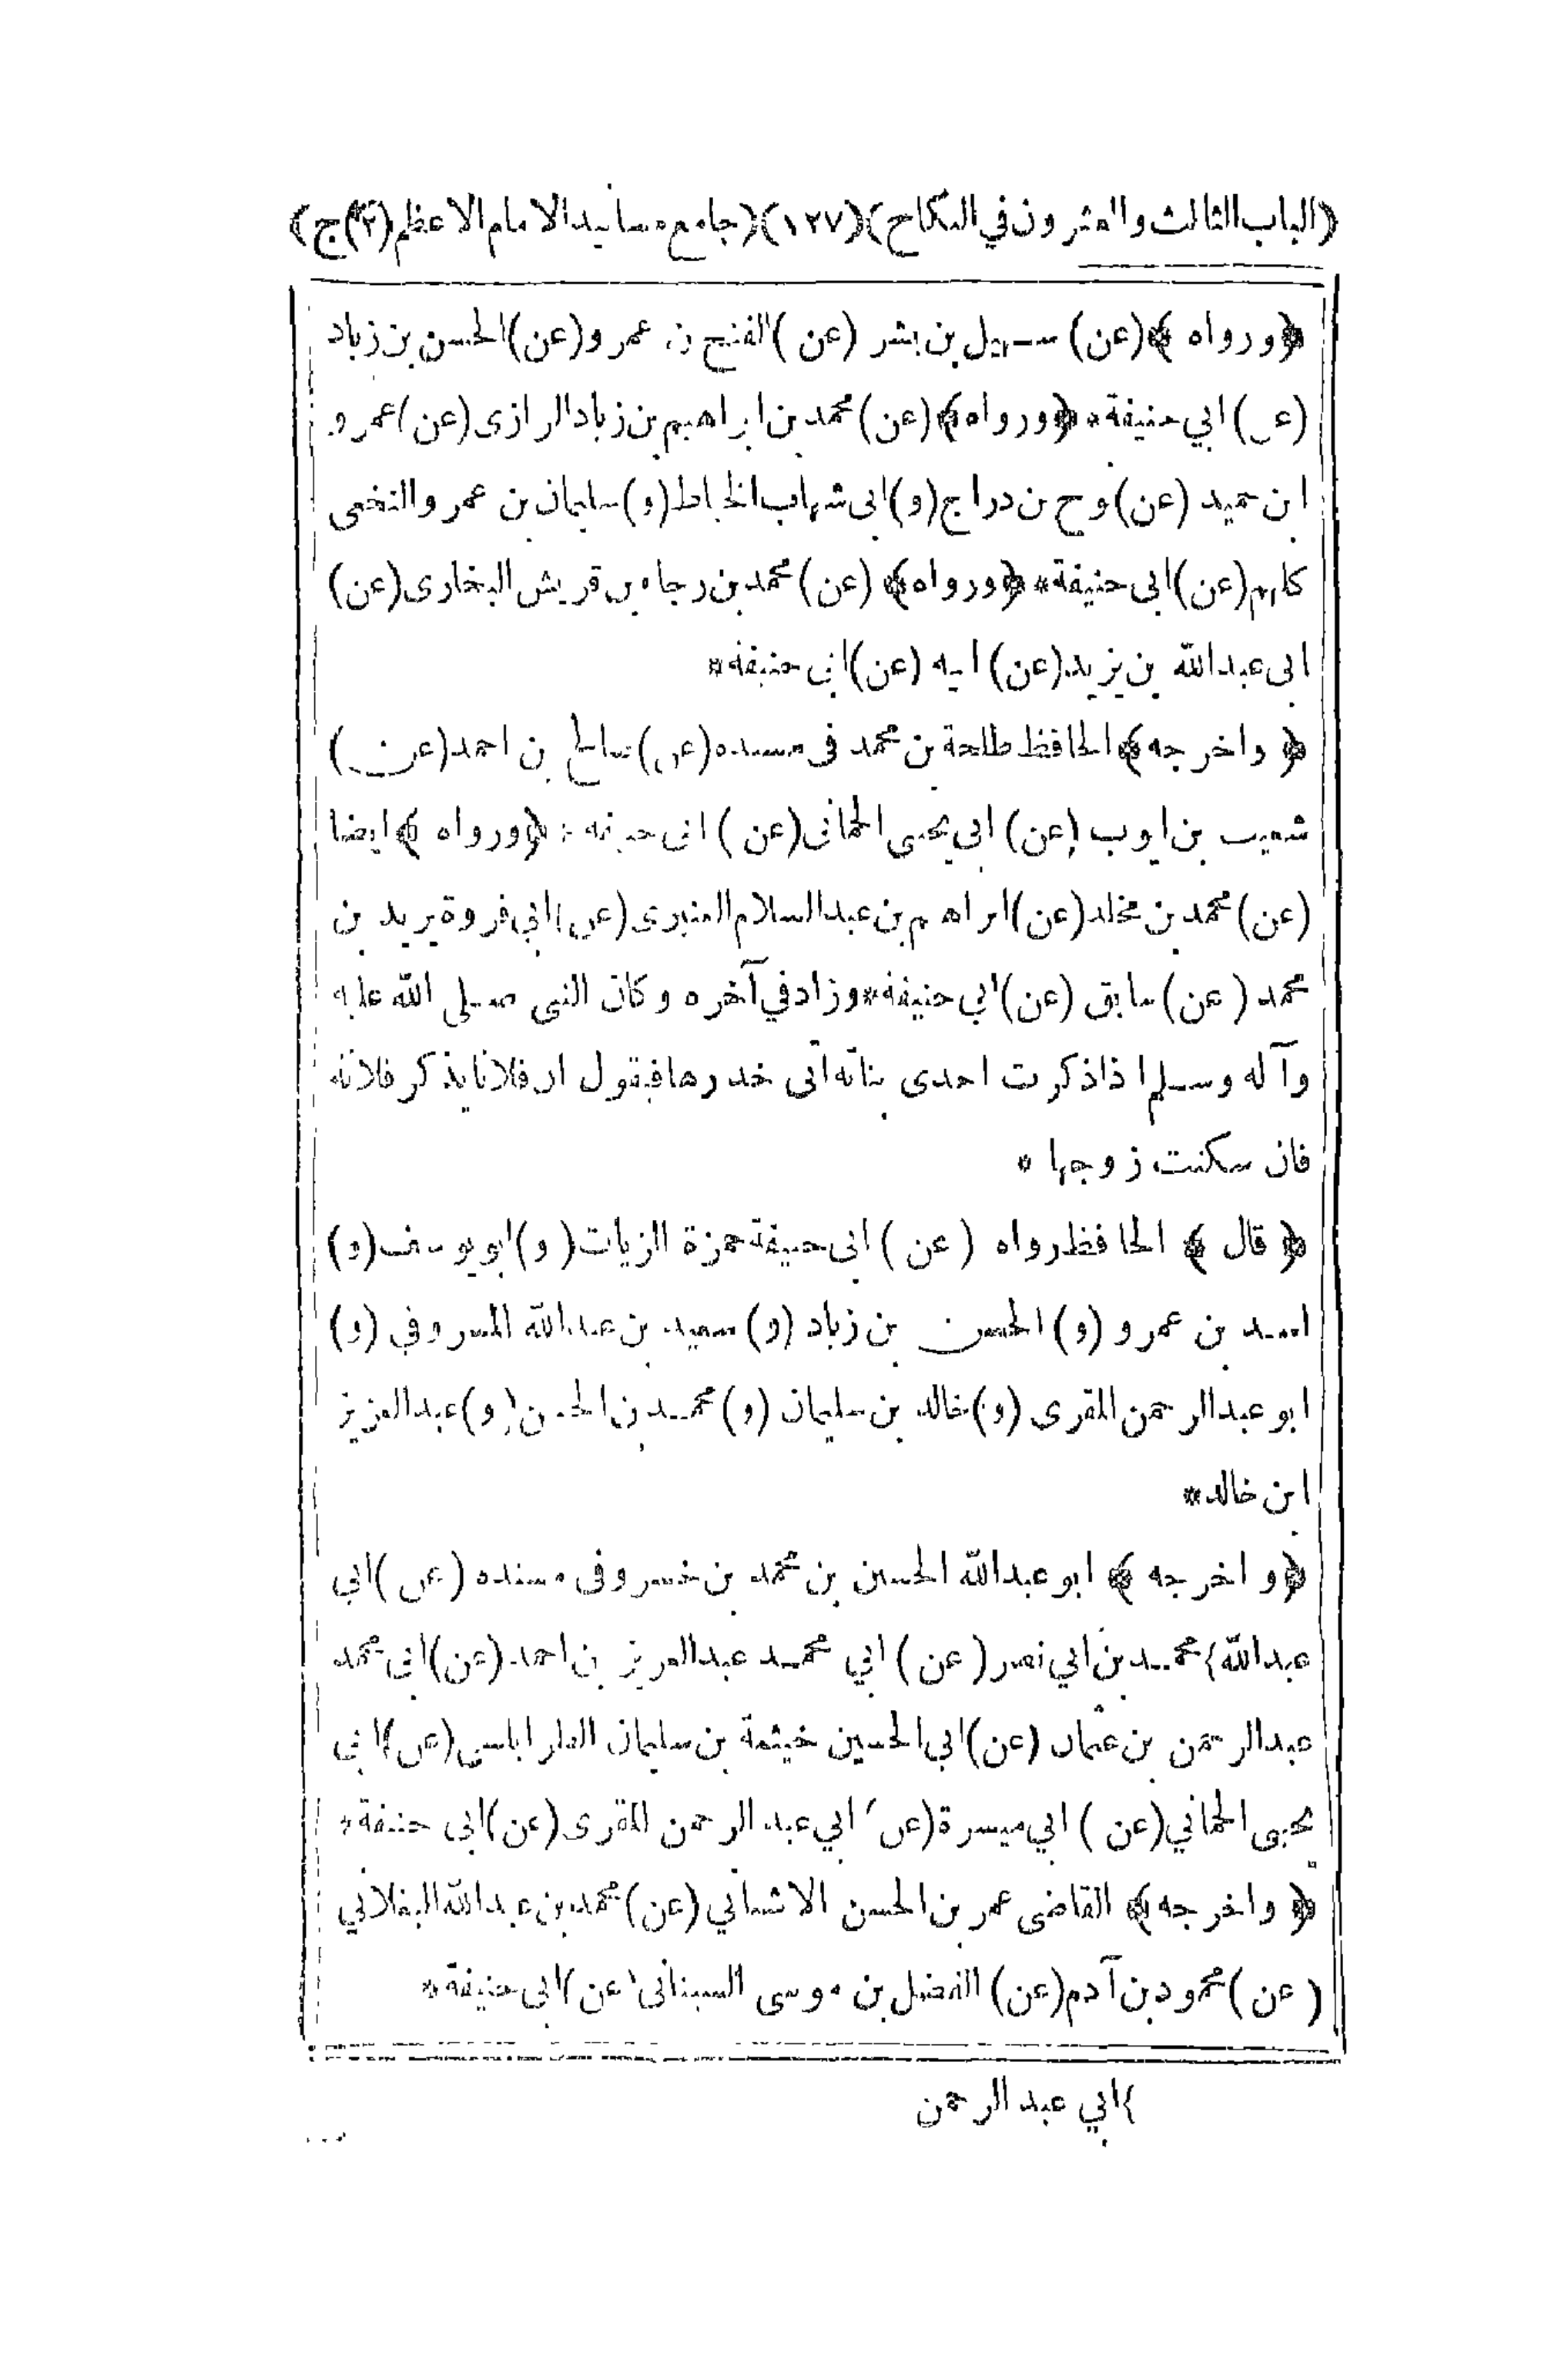 (الباب الثالث والعشرون في النكاح)(١٢٧)(جامع مسانيد الامام الاعظم(٢)ج)
﴿ورواه﴾(عن) سهيل بن بشر (عن) الفتح بن عمرو(عن)الحسن بن زياد
(عن) ابي حنيفة* ﴿ورواه﴾(عن) محمد بن ابراهيم بن زياد الرازى(عن)عمرو
ابن حميد (عن)نوح بن دراج(و)ابى شهاب الخياط(و)سليمان بن عمر والنخعى
كلهم(عن)ابى حنيفة* ﴿ورواه﴾ (عن) محمد بن رجاء بن قريش البخارى(عن)
ابى عبدالله بن يزيد(عن) ابيه (عن)ابى حنيفة*
﴿واخرجه﴾ الحافظ طلحة بن محمد فى مسنده(عن)صالح بن احمد(عن)
شعيب بن ايوب (عن) ابي يحيى الحمانى(عن) ابى حنيفة * ﴿ورواه﴾ ايضا
(عن) محمد بن مخلد(عن)ابراهيم بن عبدالسلام العنبرى(عن)ابي فروة يزيد بن
محمد (عن) سابق (عن)ابي حنيفة*وزاد في آخره وكان النبى صلى الله عليه
وآله وسلم اذا ذكرت احدى بناته أتى خدرها فيقول ان فلانا يذكر فلانة
فان سكتت زوجها *
﴿قال﴾ الحافظ رواه (عن) ابى حنيفة حمزة الزيات(و)ابو يوسف(و)
اسد بن عمرو (و) الحسن بن زياد (و) سعيد بن عبدالله المسروقي (و)
ابو عبدالرحمن المقرى (و)خالد بن سليمان (و) محمد بن الحسن(و)عبدالعزيز
ابن خالد*
﴿واخرجه﴾ ابو عبدالله الحسين بن محمد بن خسرو فى مسنده (عن)ابي
عبدالله} محمد بن ابي نصر(عن) ابي محمد عبدالعزيز بن احمد(عن)ابى محمد
عبدالرحمن بن عثمان (عن)ابي الحسين خيثمة بن سليمان الطرابلسى(عن)ابى
يحيى الحماني(عن) ابي ميسرة(عن) ابي عبد الرحمن المقرى(عن)ابى حنيفة*
﴿واخرجه﴾ القاضى عمر بن الحسن الاشناني(عن) محمد بن عبدالله البغلاني
(عن) محمود بن آدم(عن) الفضل بن موسى السينانى(عن)ابى حنيفة*
}ابي عبد الرحمن